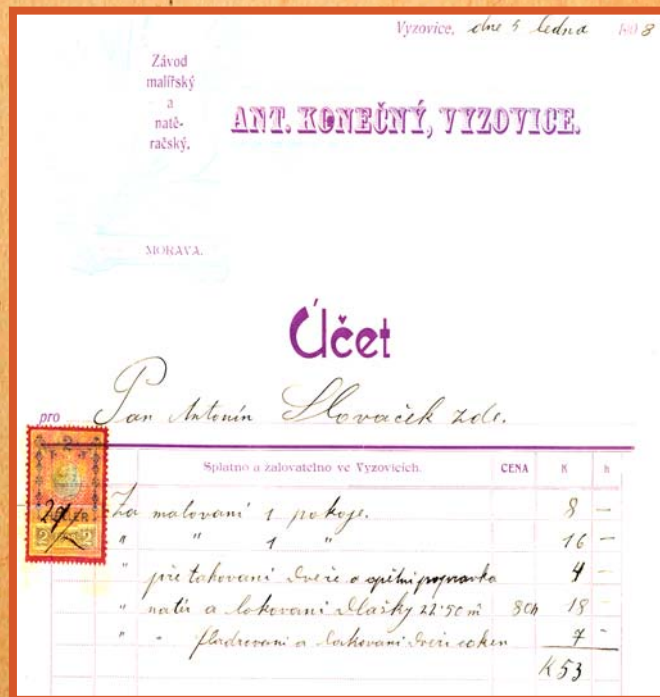 Vyzovice, dne 5 ledna 1908
Závod
malířský
a
natě-
račský.
ANT. KONEČNÝ, VYZOVICE.
MORAVA.
Účet
pro Pan Antonín Slovaček zde.
Splatno a žalovatelno ve Vyzovicích. CENA K h
Za malovani 1 pokoje. 8 —
" " 1 " 16 —
" přetakovani dveře a opětni popravka 4 —
" natěr a lakovani dlašky 22·50 m 80h 18 -
" - fladrovani a lakovani dveři a oken 7 -
K 53
2
2 2